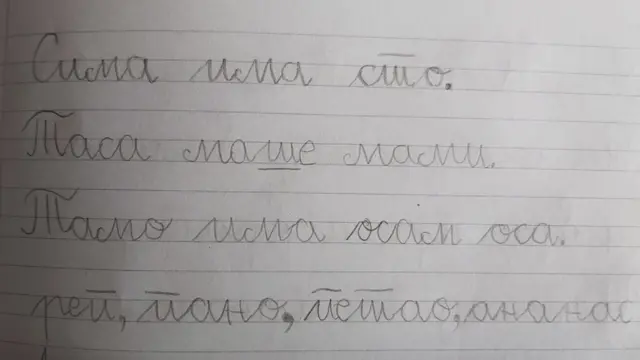 Сима има сто.
Таса маше мами.
Тамо има осам оса.
реп, пано, петао, ананас